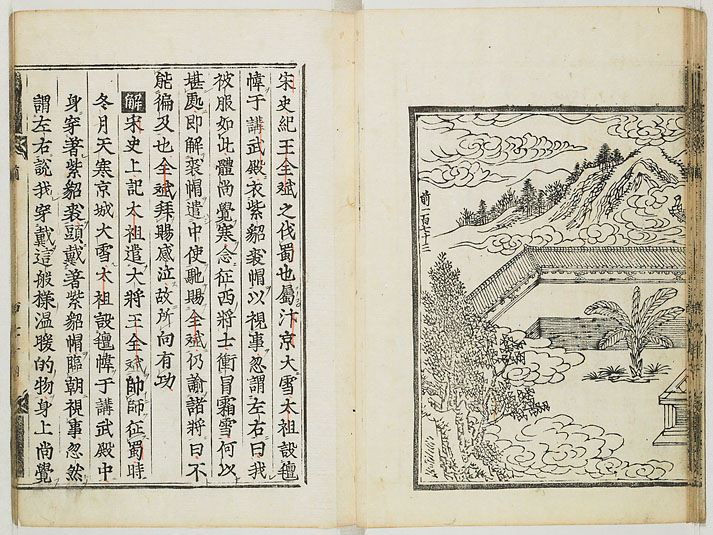 前一百七十三
宋史紀王全斌之伐蜀也屬汴京大雪太祖設氊
幃于講武殿衣紫貂裘帽以視事忽謂左右曰我
被服如此體尚覺寒念征西將士衝冒霜雪何以
堪處即解裘帽遣中使馳賜全斌仍諭諸將曰不
能徧及也全斌拜賜感泣故所向有功
解宋史上記太祖遣大將王全斌帥師征蜀時
冬月天寒京城大雪太祖設氊幃于講武殿中
身穿著紫貂裘頭戴著紫貂帽臨朝視事忽然
謂左右說我穿戴這般樣溫暖的物身上尚覺